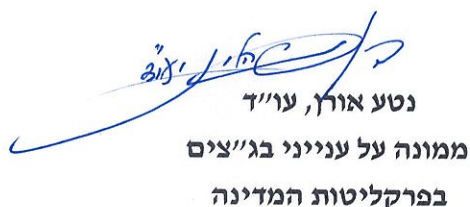 נטע אורן, עו״ד
ממונה על ענייני בג״צים
בפרקליטות המדינה